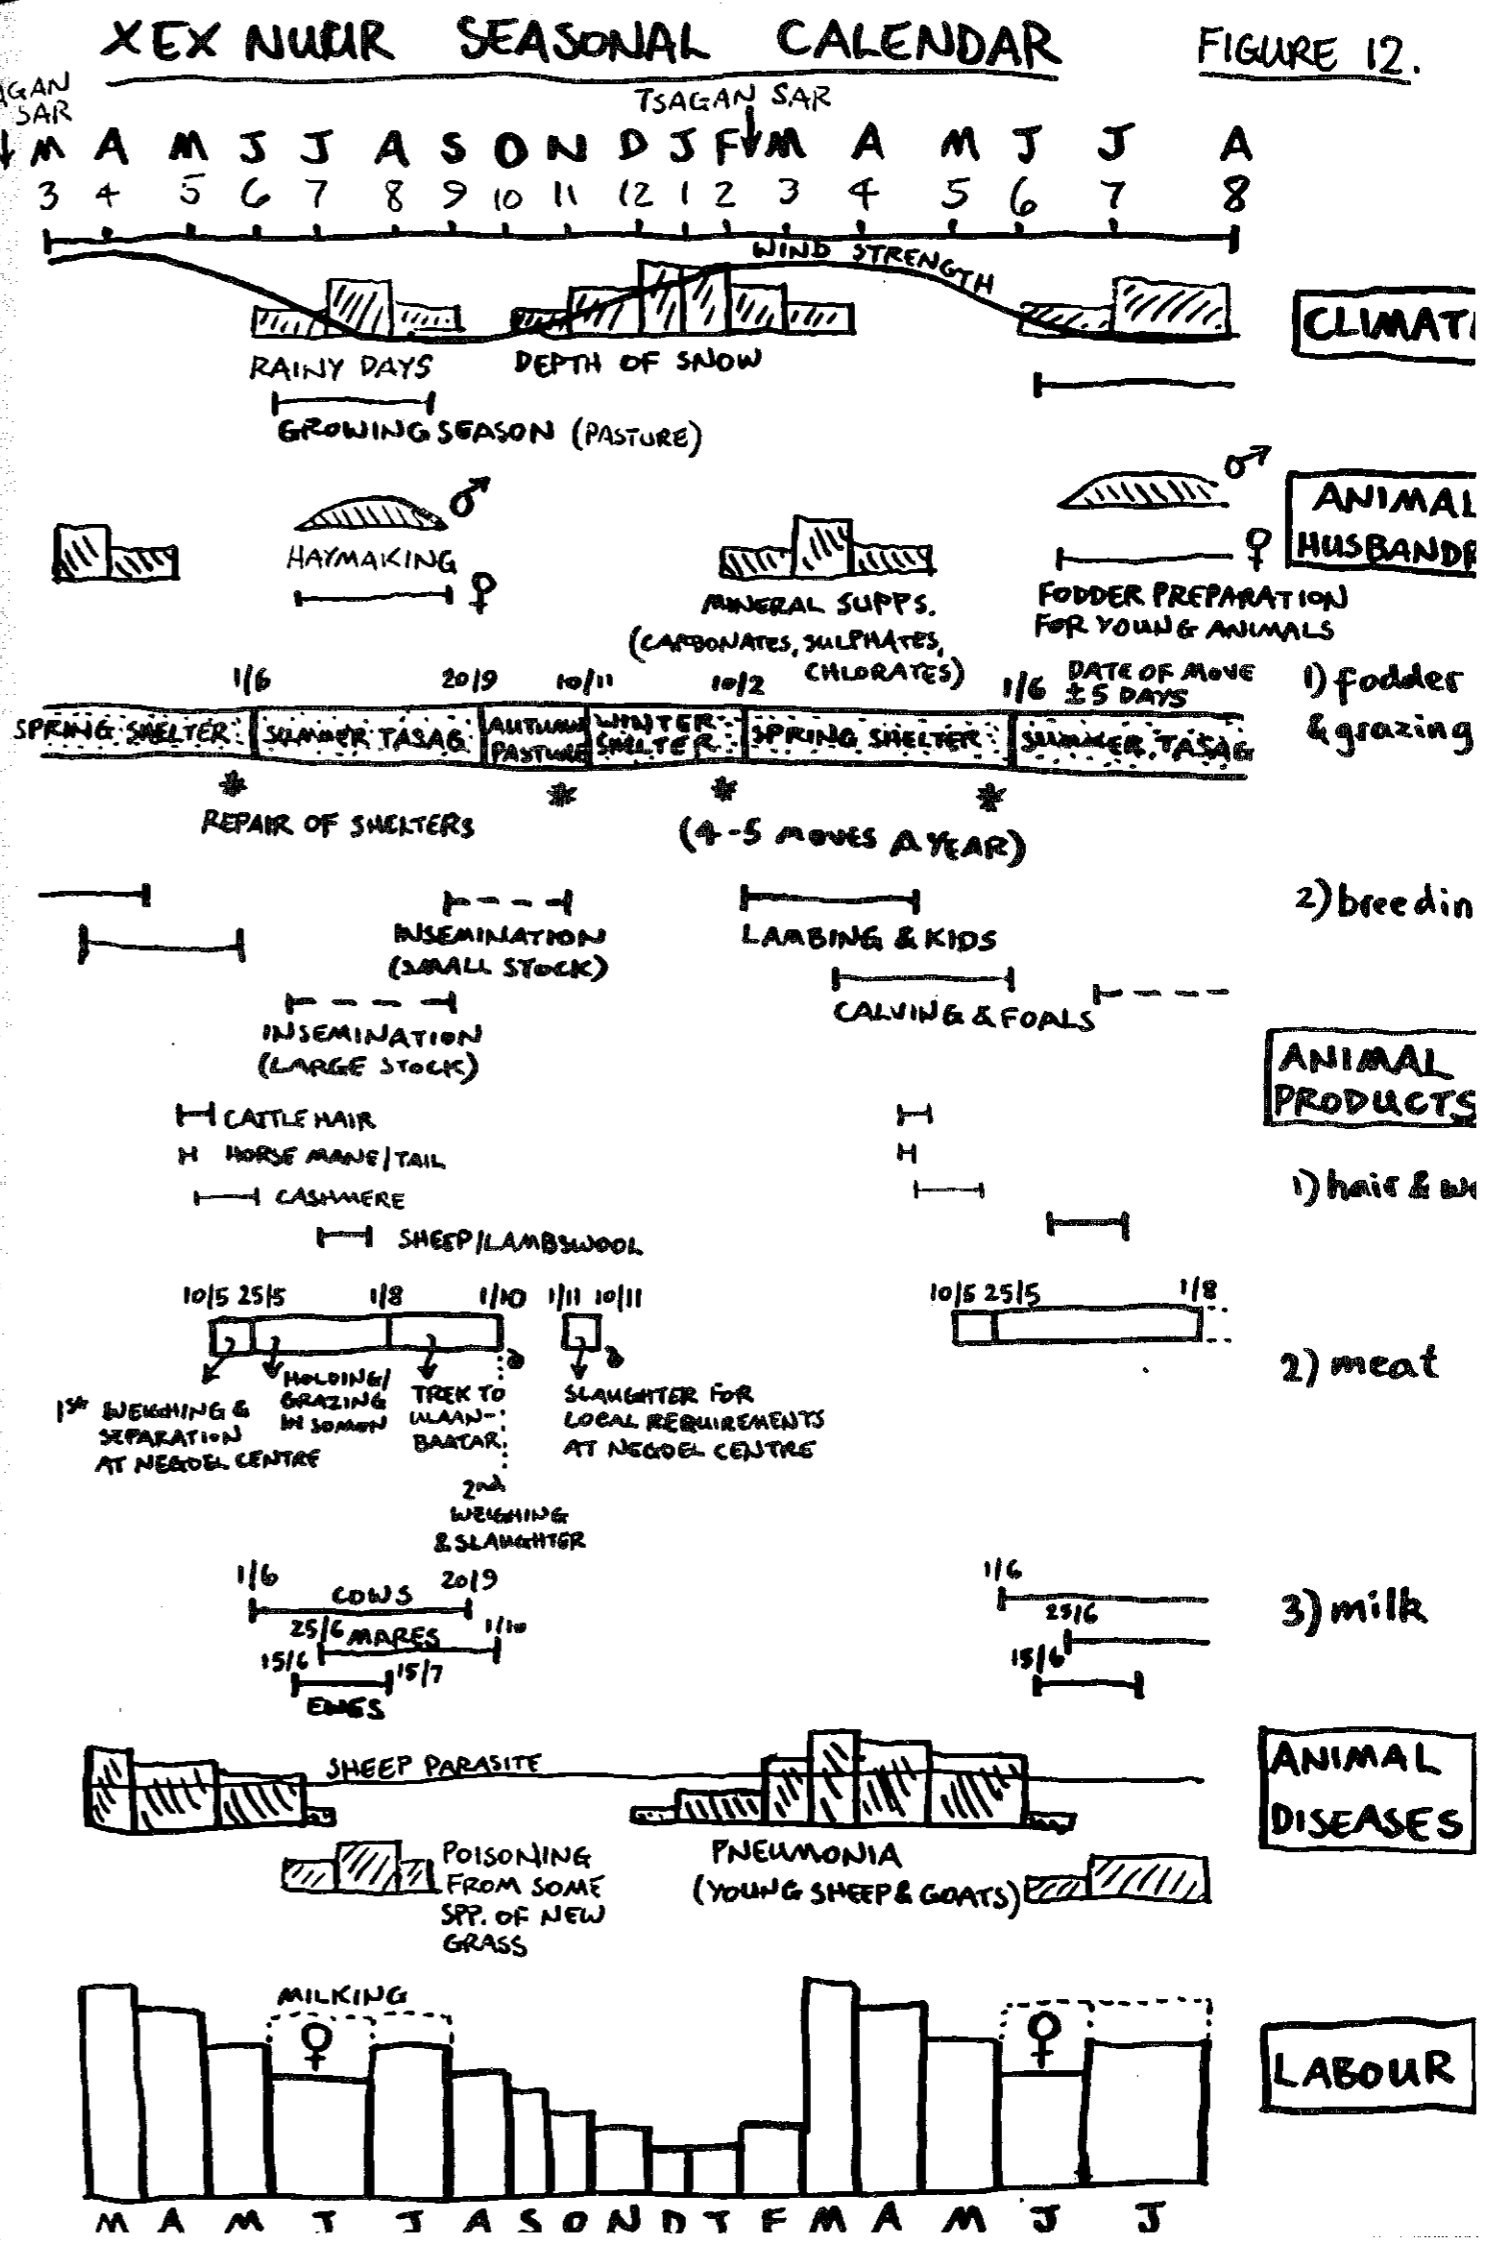 XEX NUUR SEASONAL CALENDAR
FIGURE 12.
AGAN
SAR
TSAGAN SAR
M A M J J A S O N D J F M A M J J A
3 4 5 6 7 8 9 10 11 12 1 2 3 4 5 6 7 8
WIND STRENGTH
CLIMATI
RAINY DAYS
DEPTH OF SNOW
GROWING SEASON (PASTURE)
♂
♂
ANIMAL
HUSBANDR
HAYMAKING
♀
♀
MINERAL SUPPS.
(CARBONATES, SULPHATES,
CHLORATES)
FODDER PREPARATION
FOR YOUNG ANIMALS
1/6 20/9 10/11 10/2 1/6
DATE OF MOVE
±5 DAYS
1) fodder
& grazing
SPRING SHELTER
SUMMER TASAG
AUTUMN
PASTURE
WINTER
SHELTER
SPRING SHELTER
SUMMER TASAG
* * * *
REPAIR OF SHELTERS
(4-5 MOVES A YEAR)
2) breedin
INSEMINATION
(SMALL STOCK)
LAMBING & KIDS
CALVING & FOALS
INSEMINATION
(LARGE STOCK)
ANIMAL
PRODUCTS
CATTLE HAIR
HORSE MANE/TAIL
CASHMERE
1) hair & wo
SHEEP/LAMBSWOOL
10/5 25/5 1/8 1/10 1/11 10/11
10/5 25/5 1/8
2) meat
1st WEIGHING &
SEPARATION
AT NEGDEL CENTRE
HOLDING/
GRAZING
IN SOMON
TREK TO
ULAAN-
BAATAR
SLAUGHTER FOR
LOCAL REQUIREMENTS
AT NEGDEL CENTRE
2nd
WEIGHING
& SLAUGHTER
1/6 COWS 20/9
25/6 MARES 1/10
15/6 15/7
EWES
1/6
25/6
15/6
3) milk
SHEEP PARASITE
ANIMAL
DISEASES
POISONING
FROM SOME
SPP. OF NEW
GRASS
PNEUMONIA
(YOUNG SHEEP & GOATS)
MILKING
♀
♀
LABOUR
M A M J J A S O N D J F M A M J J